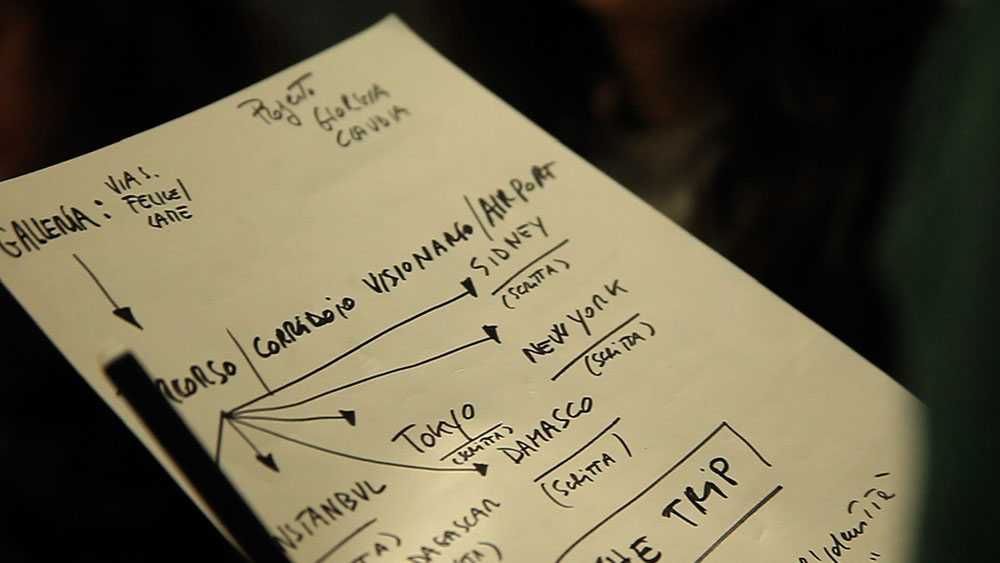 Progetto
GIORGIA
CLAUDIA
GALLERIA:
VIA S.
FELICE/
LAME
RCORSO/CORRIDOIO VISIONARIO/AIRPORT
SIDNEY
(SCRITTA)
NEW YORK
(SCRITTA)
TOKYO
(SCRITTA)
DAMASCO
(SCRITTA)
NSTANBUL
TA)
DAGASCAR
TA)
HE TRIP